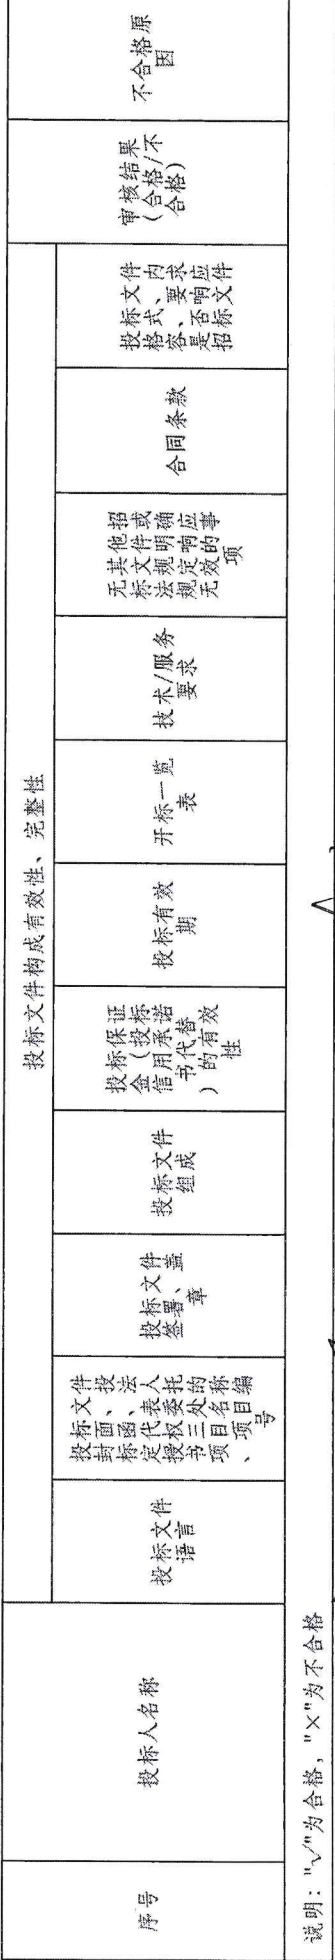 序号
投标人名称
投标文件构成有效性、完整性
审核结果
(合格/不
合格)
不合格原
因
投标文件
语言
投标文件
封面、投
标函、法
定代表人
授权委托
书三处的
项目名称
、项目编
号
投标文件
签署、盖
章
投标文件
组成
投标保证
金(投标
信用承诺
书代替
)的有效
性
投标有效
期
开标一览
表
技术/服务
要求
无其他招
标文件或
法规明确
规定响应
无效的事
项
合同条款
投标文件
格式、内
容、要求
是否响应
招标文件
说明："√"为合格，"×"为不合格